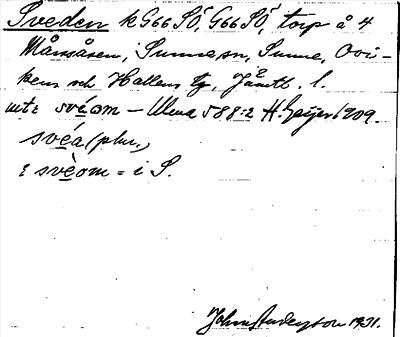 Sveden k G66 SÖ, G66 SÖ, torp å 4
Månsåsen, Sunne sn, Sunne, Ovi-
kens och Hallens tg, Jämtl. l.
uti svéom – Ulma 588:2 H. Geijer 1909.
svéa (plur.)
i svèom = i S.
1931.